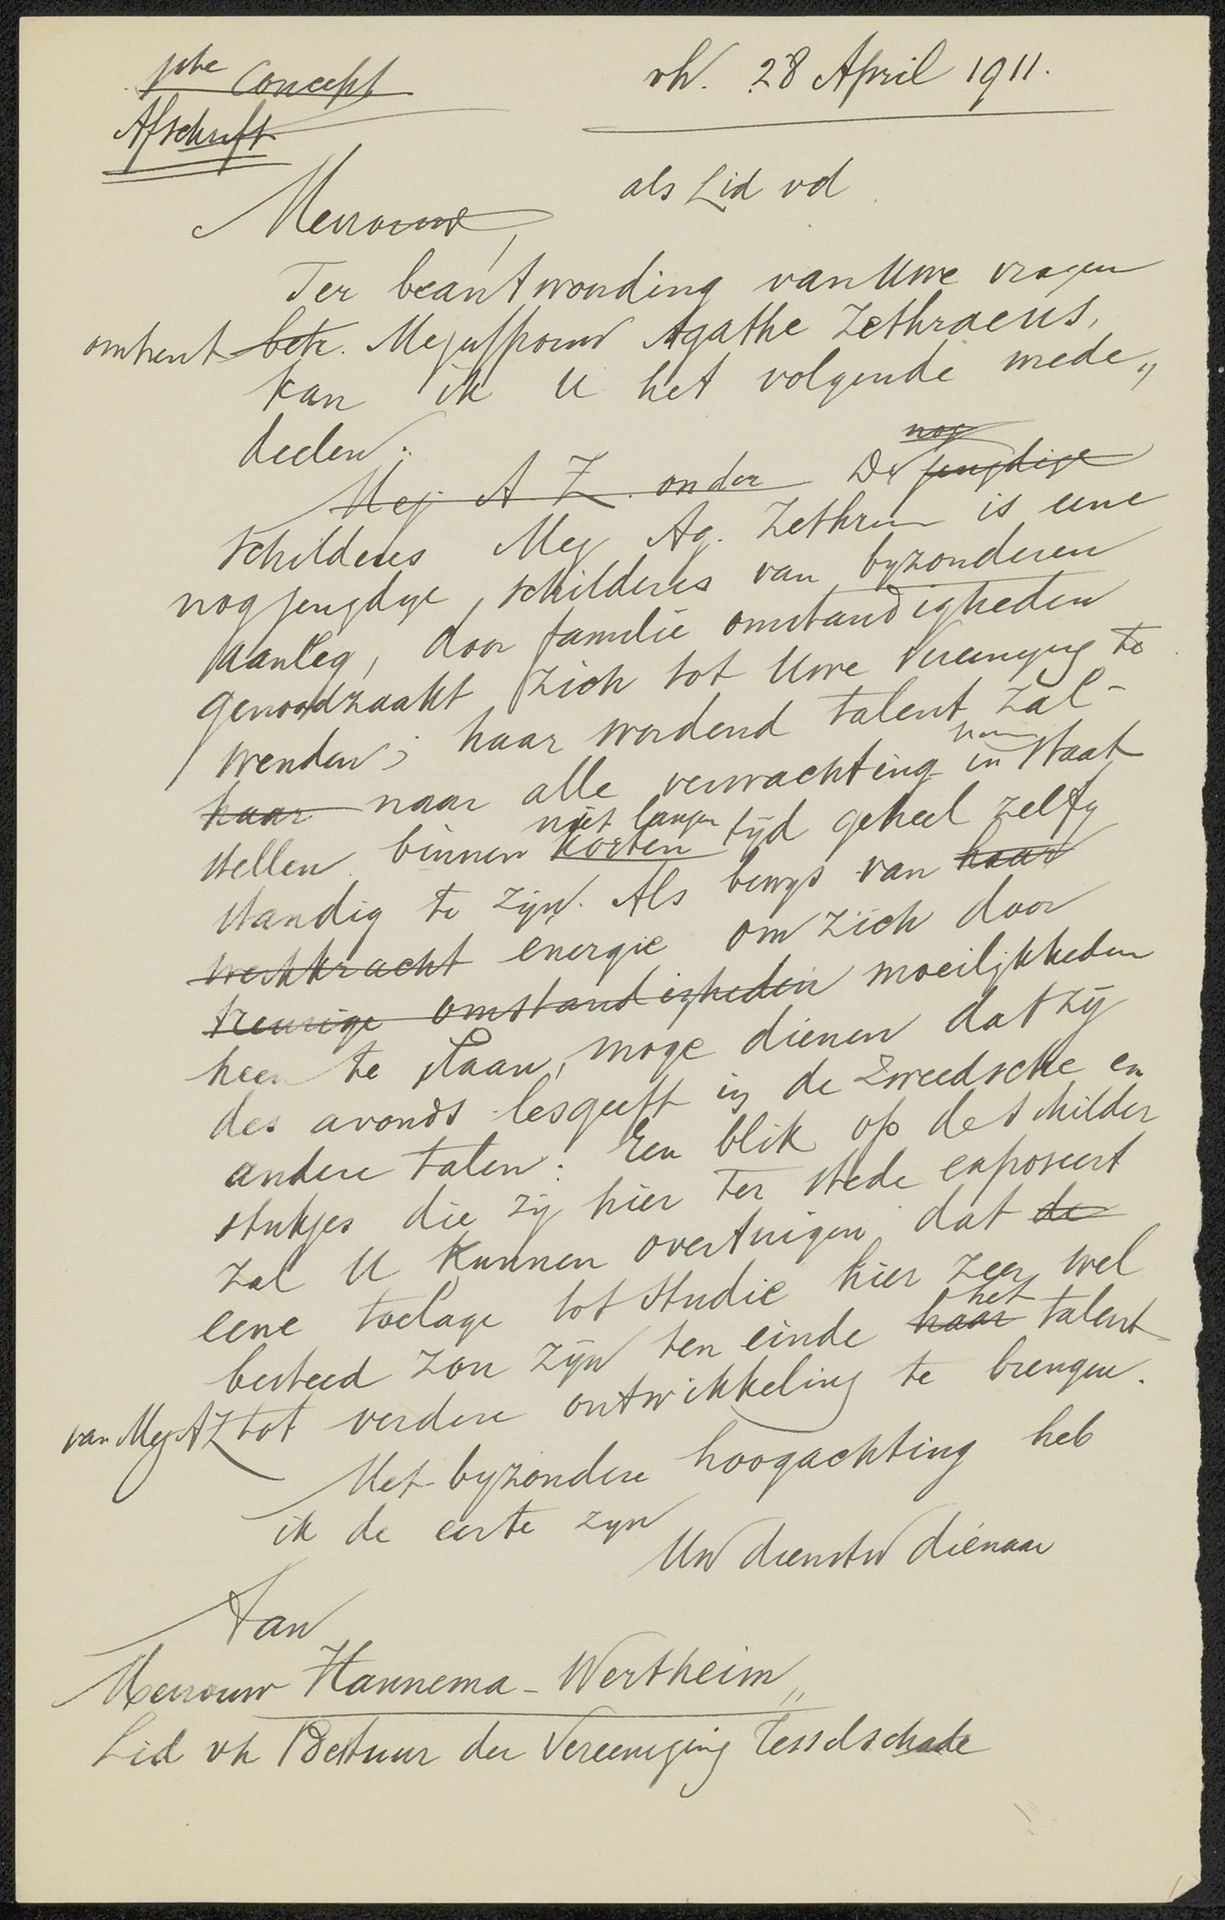 Concept
vh. 28 April 1911.
Afschrift
als Lid vd
Mevrouw,
Ter beantwoording van Uwe vragen
omtrent betr. Mejuffrouw Agathe Zethraeus,
kan ik U het volgende mede„
deelen:
nog
Mej. A Z. onder De jeugdige
schilderes Mej Ag. Zethr is eene
nog jeugdige schilderes van byzonderen
aanleg, door familie omstandigheden
genoodzaakt zich tot Uwe Vereeniging te
wenden; haar wordend talent zal
haar naar alle verwachting in staat
niet langen
stellen binnen korten tijd geheel zelfs
standig te zijn. Als bewys van haar
werkkracht energie om zich door
treurige omstandigheden moeilijkheden
heen te slaan, moge dienen dat zij
des avonds lesgeeft in de Zweedsche en
andere talen. Een blik op de schilder
stukjes die zij hier ter stede exposeert
zal U kunnen overtuigen dat de
eene toelage tot studie hier zeer wel
het
besteed zou zijn ten einde haar talent
van Mej AZ tot verdere ontwikkeling te brengen.
Met byzondere hoogachting heb
ik de eer te zyn
Uw dienstw dienaar
Aan
Mevrouw Hannema - Wertheim„
Lid vh Bestuur der Vereeniging Tesselschade